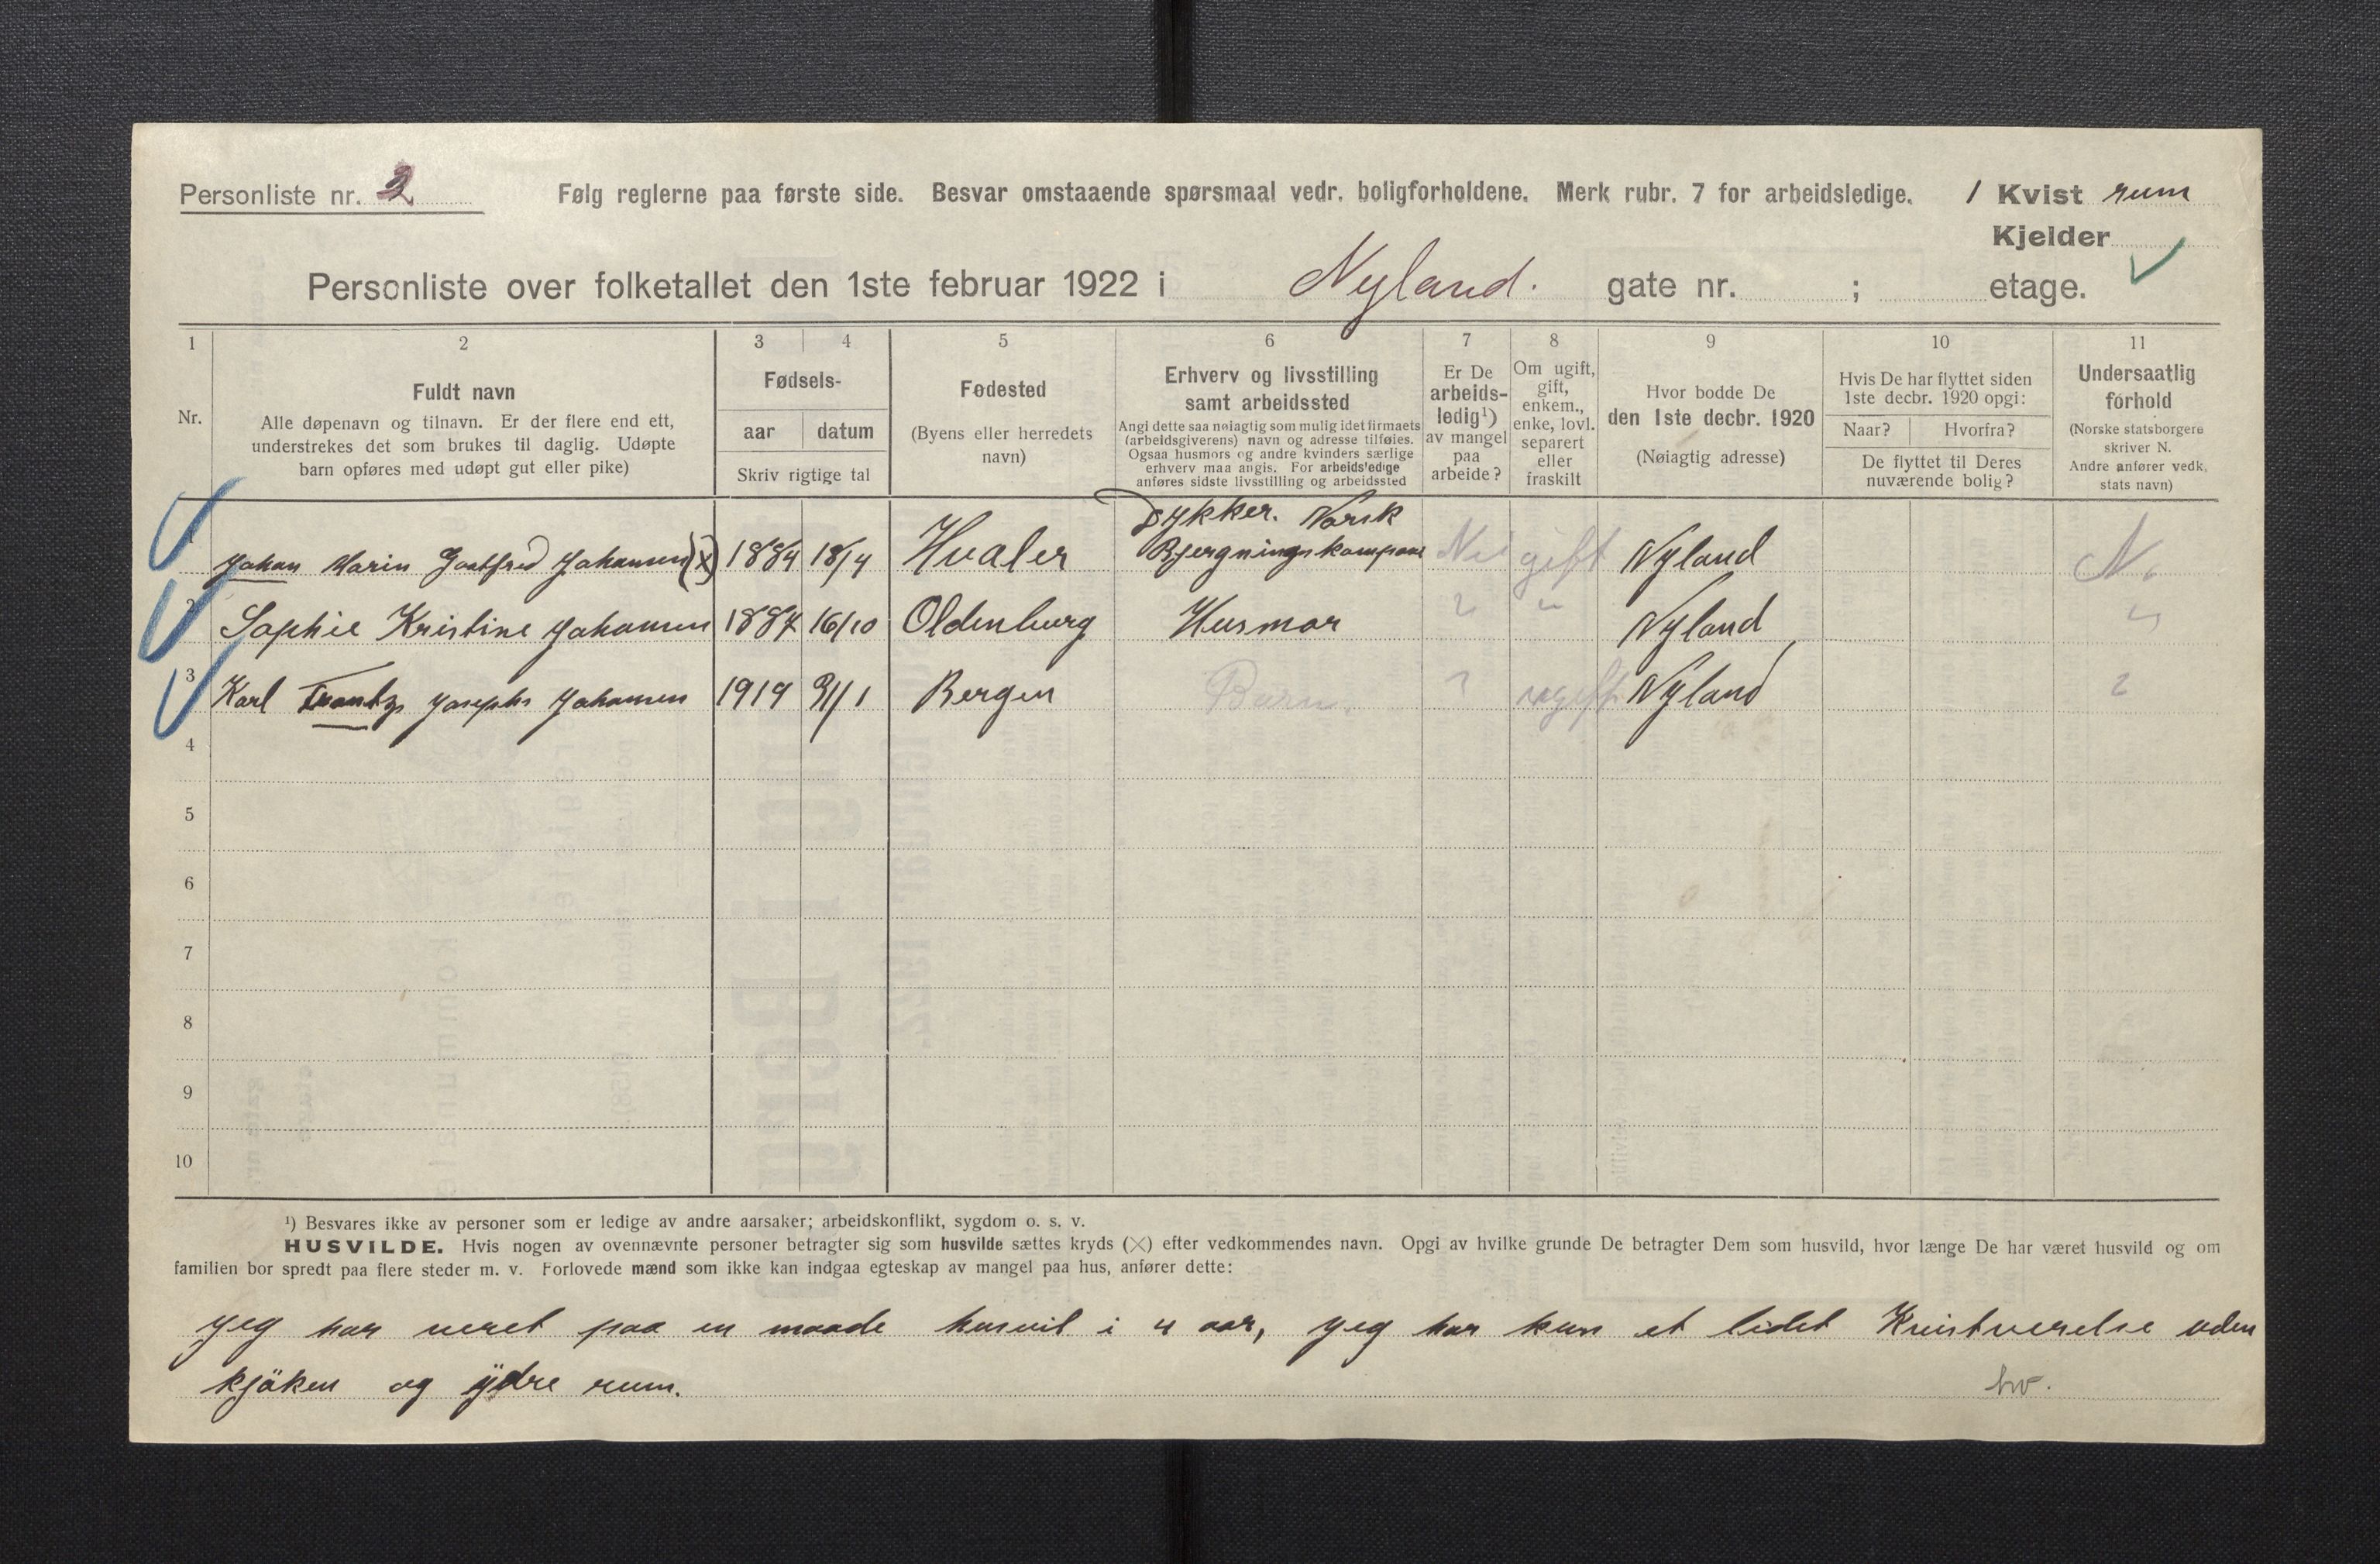 Personliste nr. 2 Følg reglerne paa første side. Besvar omstaaende spørsmaal vedr. boligforholdene. Merk rubr. 7 for arbeidsledige. 1 Kvist rum
Kjelder
Personliste over folketallet den 1ste februar 1922 i Nyland. gate nr. ; etage.
1 2 3 4 5 6 7 8 9 10 11
Nr.
Fuldt navn
Alle døpenavn og tilnavn. Er der flere end ett,
understrekes det som brukes til daglig. Udøpte
barn opføres med udøpt gut eller pike)
Fødsels-
aar datum
Skriv rigtige tal
Fødested
(Byens eller herredets
navn)
Erhverv og livsstilling
samt arbeidssted
Angi dette saa nøiagtig som mulig idet firmaets
(arbeidsgiverens) navn og adresse tilføies.
Ogsaa husmors og andre kvinders særlige
erhverv maa angis. For arbeidsledige
anføres sidste livsstilling og arbeidssted
Er De
arbeids-
ledig¹)
av mangel
paa
arbeide?
Om ugift,
gift,
enkem.,
enke, lovl.
separert
eller
fraskilt
Hvor bodde De
den 1ste decbr. 1920
(Nøiagtig adresse)
Hvis De har flyttet siden
1ste decbr. 1920 opgi:
Naar? Hvorfra?
De flyttet til Deres
nuværende bolig?
Undersaatlig
forhold
(Norske statsborgere
skriver N.
Andre anfører vedk.
stats navn)
Dykker. Norsk
1 Johan Marin Gostfred Johansen (x) 1884 18/4 Hvaler Bjergningskompani Nei gift Nyland N.
2 Sophie Kristine Johansen 1887 16/10 Oldenburg Husmor " " Nyland "
3 Karl Frantz Josephs Johansen 1919 31/1 Bergen Barn. " ugift Nyland "
4
5
6
7
8
9
10
¹) Besvares ikke av personer som er ledige av andre aarsaker; arbeidskonflikt, sygdom o. s. v.
HUSVILDE. Hvis nogen av ovennævnte personer betragter sig som husvilde sættes kryds (×) efter vedkommendes navn. Opgi av hvilke grunde De betragter Dem som husvild, hvor længe De har været husvild og om
familien bor spredt paa flere steder m. v. Forlovede mænd som ikke kan indgaa egteskap av mangel paa hus, anfører dette:
Jeg har veret paa en maade husvil i 4 aar, Jeg har kun et lidet Kvistverelse uden
kjöken og ydre rum. hv.